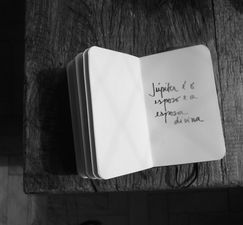 júpiter é o
esposo e a
esposa
divina